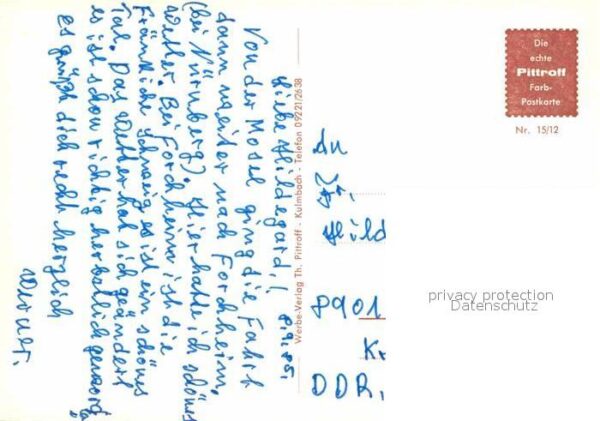 Liebe Hildegard! 8.9.85.
Von der Mosel ging die Fahrt
dann weiter nach Forchheim,
(bei Nürnberg). Hier hatte ich schönes
Wetter. Bei Forchheim ist die
Fränkische Schweiz es ist ein schönes
Tal. Das Wetter hat sich geändert
es ist schon richtig herbstlich geword
es grüßt dich recht herzlich
Werbe-Verlag Th. Pittroff - Kulmbach - Telefon 09221/2638
Die
echte
Pittroff
Farb-
Postkarte
Nr. 15/12
An
Fr.
Hild
8901
Kr
DDR.
privacy protection
Datenschutz